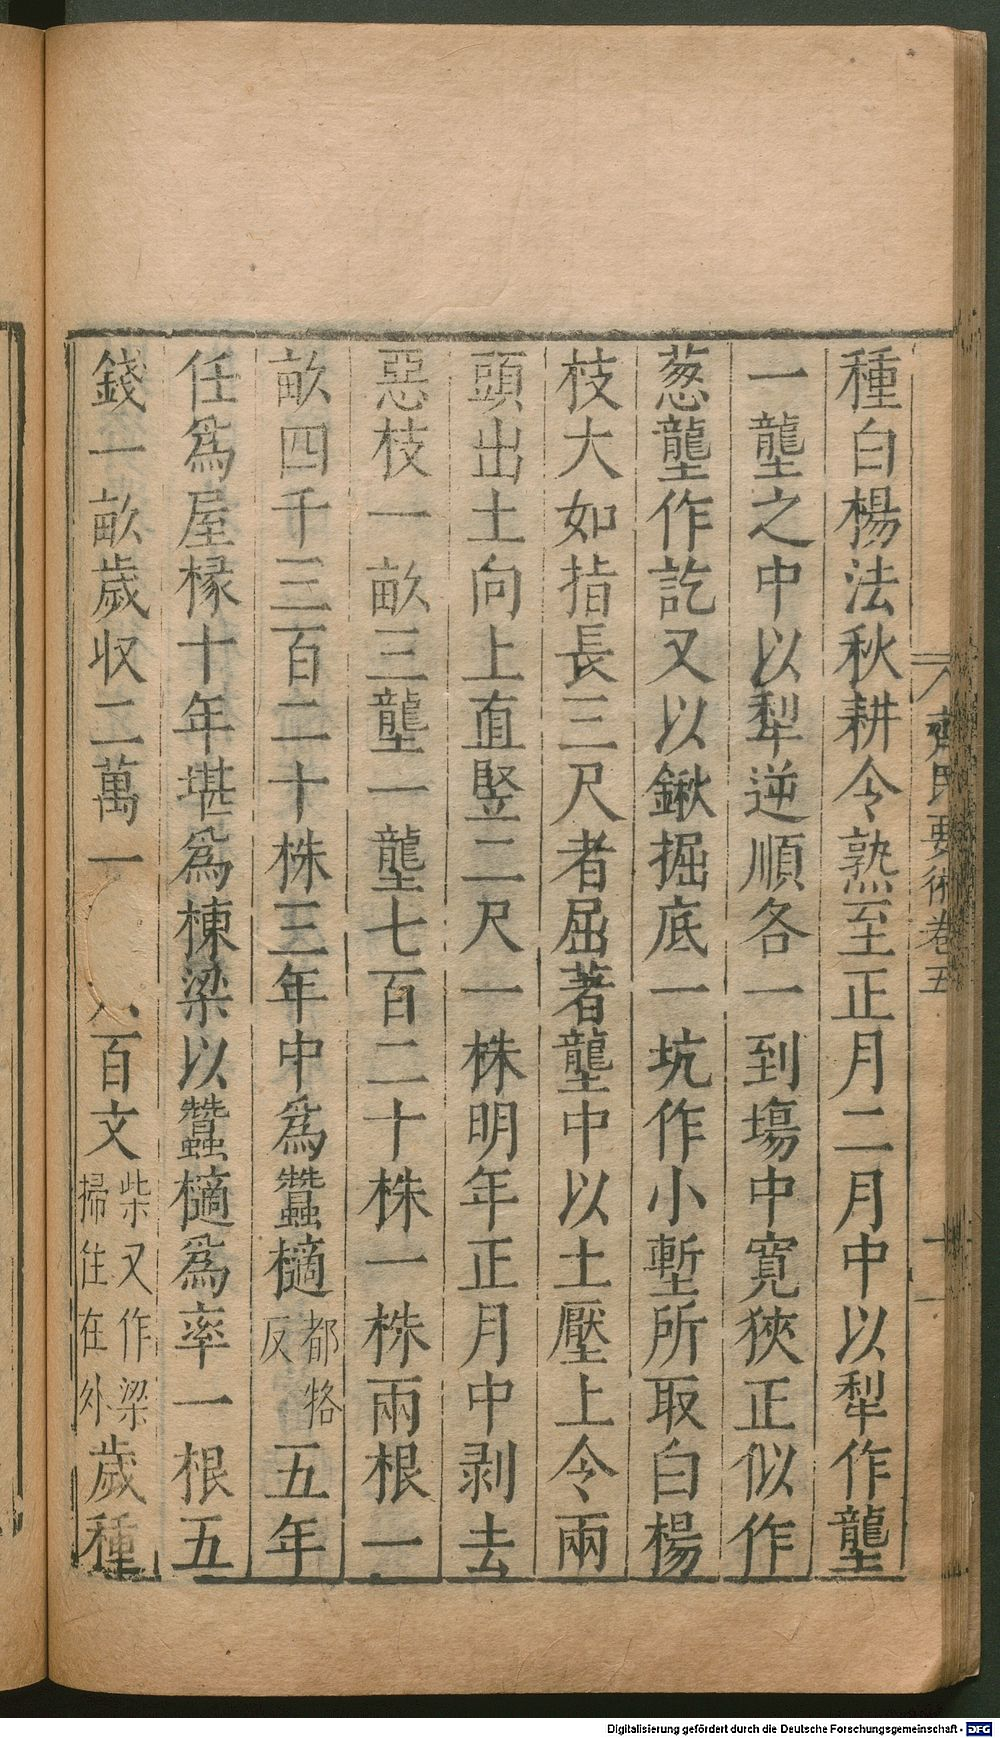 種白楊法秋耕令熟至正月二月中以犁作壟
一壟之中以犁逆順各一到塲中寛狹正似作
葱壟作訖又以鍬掘底一坑作小塹所取白楊
枝大如指長三尺者屈著壟中以土壓上令兩
頭出土向上直竪二尺一株明年正月中剥去
惡枝一畝三壟一壟七百二十株一株兩根一
畝四千三百二十株三年中爲蠶樀都狢反五年
任爲屋椽十年堪爲棟梁以蠶樀爲率一根五
錢一畝歲收二萬一 八百文柴又作梁掃住在外歲種
齊民要術卷五
十一
Digitalisierung gefördert durch die Deutsche Forschungsgemeinschaft - DFG